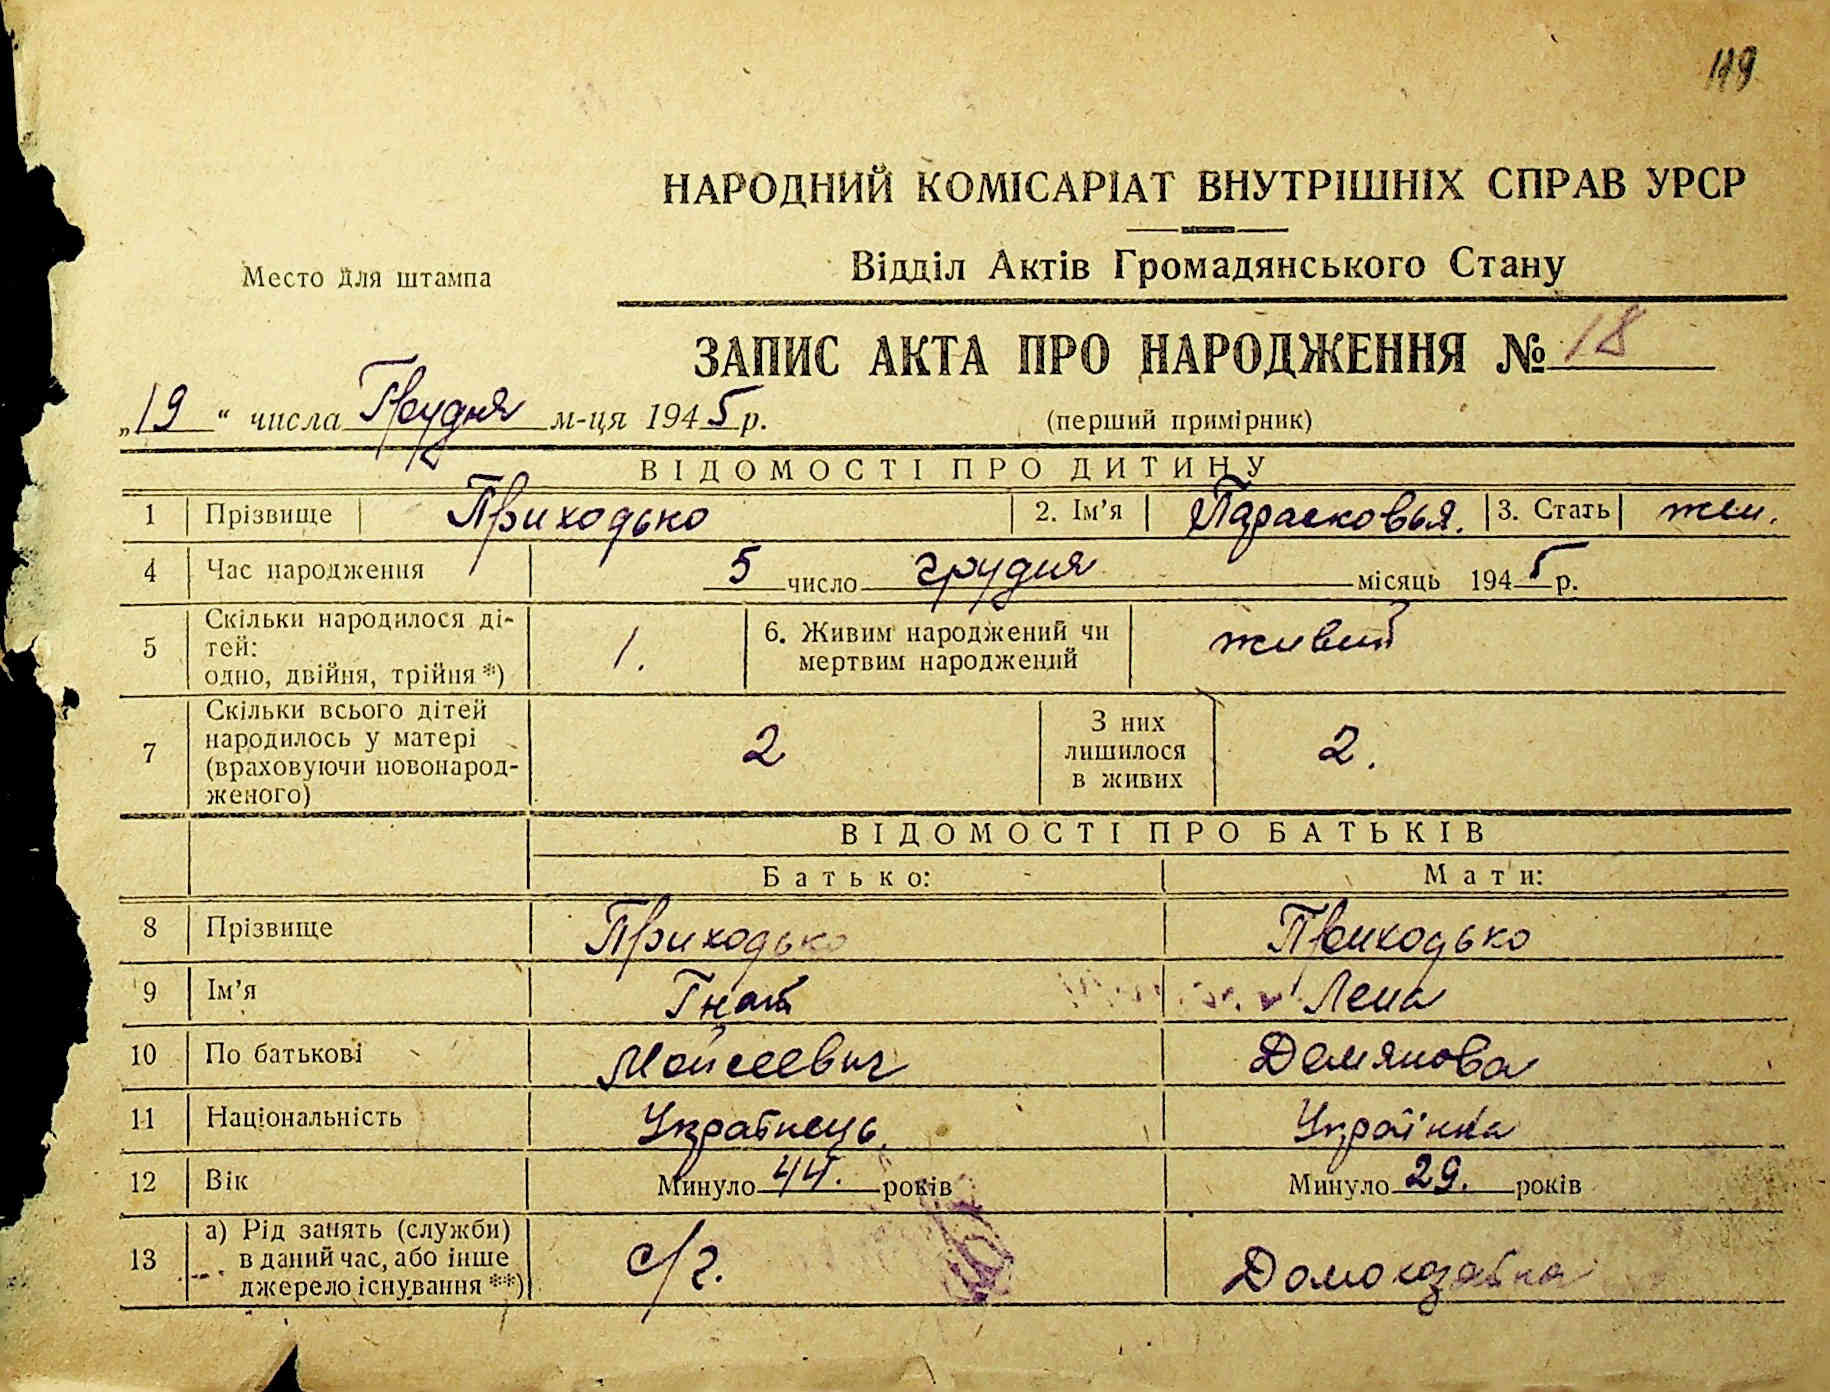 119
НАРОДНИЙ КОМІСАРІАТ ВНУТРІШНІХ СПРАВ УРСР
Відділ Актів Громадянського Стану
Место для штампа
ЗАПИС АКТА ПРО НАРОДЖЕННЯ № 18
„19“ числа Грудня м-ця 1945 р.
(перший примірник)
ВІДОМОСТІ ПРО ДИТИНУ
1 Прізвище Приходько 2. Ім’я Парасковья. 3. Стать жен.
4 Час народження 5 число грудня місяць 1945 р.
5 Скільки народилося ді-
тей:
одно, двійня, трійня *) 1. 6. Живим народжений чи
мертвим народжений живий
7 Скільки всього дітей
народилось у матері
(враховуючи новонарод-
женого) 2 З них
лишилося
в живих 2.
ВІДОМОСТІ ПРО БАТЬКІВ
Батько: Мати:
8 Прізвище Приходько Приходько
9 Ім’я Гнат Лена
10 По батькові Мойсеевич Демянова
11 Національність Українець. Українка
12 Вік Минуло 44. років Минуло 29. років
13 а) Рід занять (служби)
в даний час, або інше
джерело існування **) с/г. Домохозайка